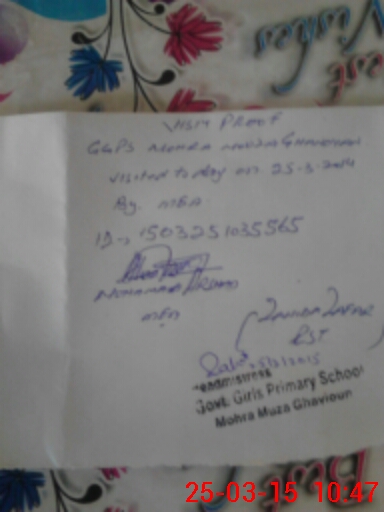 Visit Proof
GGPS Mohra
visited today on 25-3-2014
By. MEA
ID → 1503251035565
Mohammad
MEA
Zahida Zafar
PST
25/3/2015
Headmistress
Govt. Girls Primary School
Mohra Muza Ghavioun
25-03-15 10:47